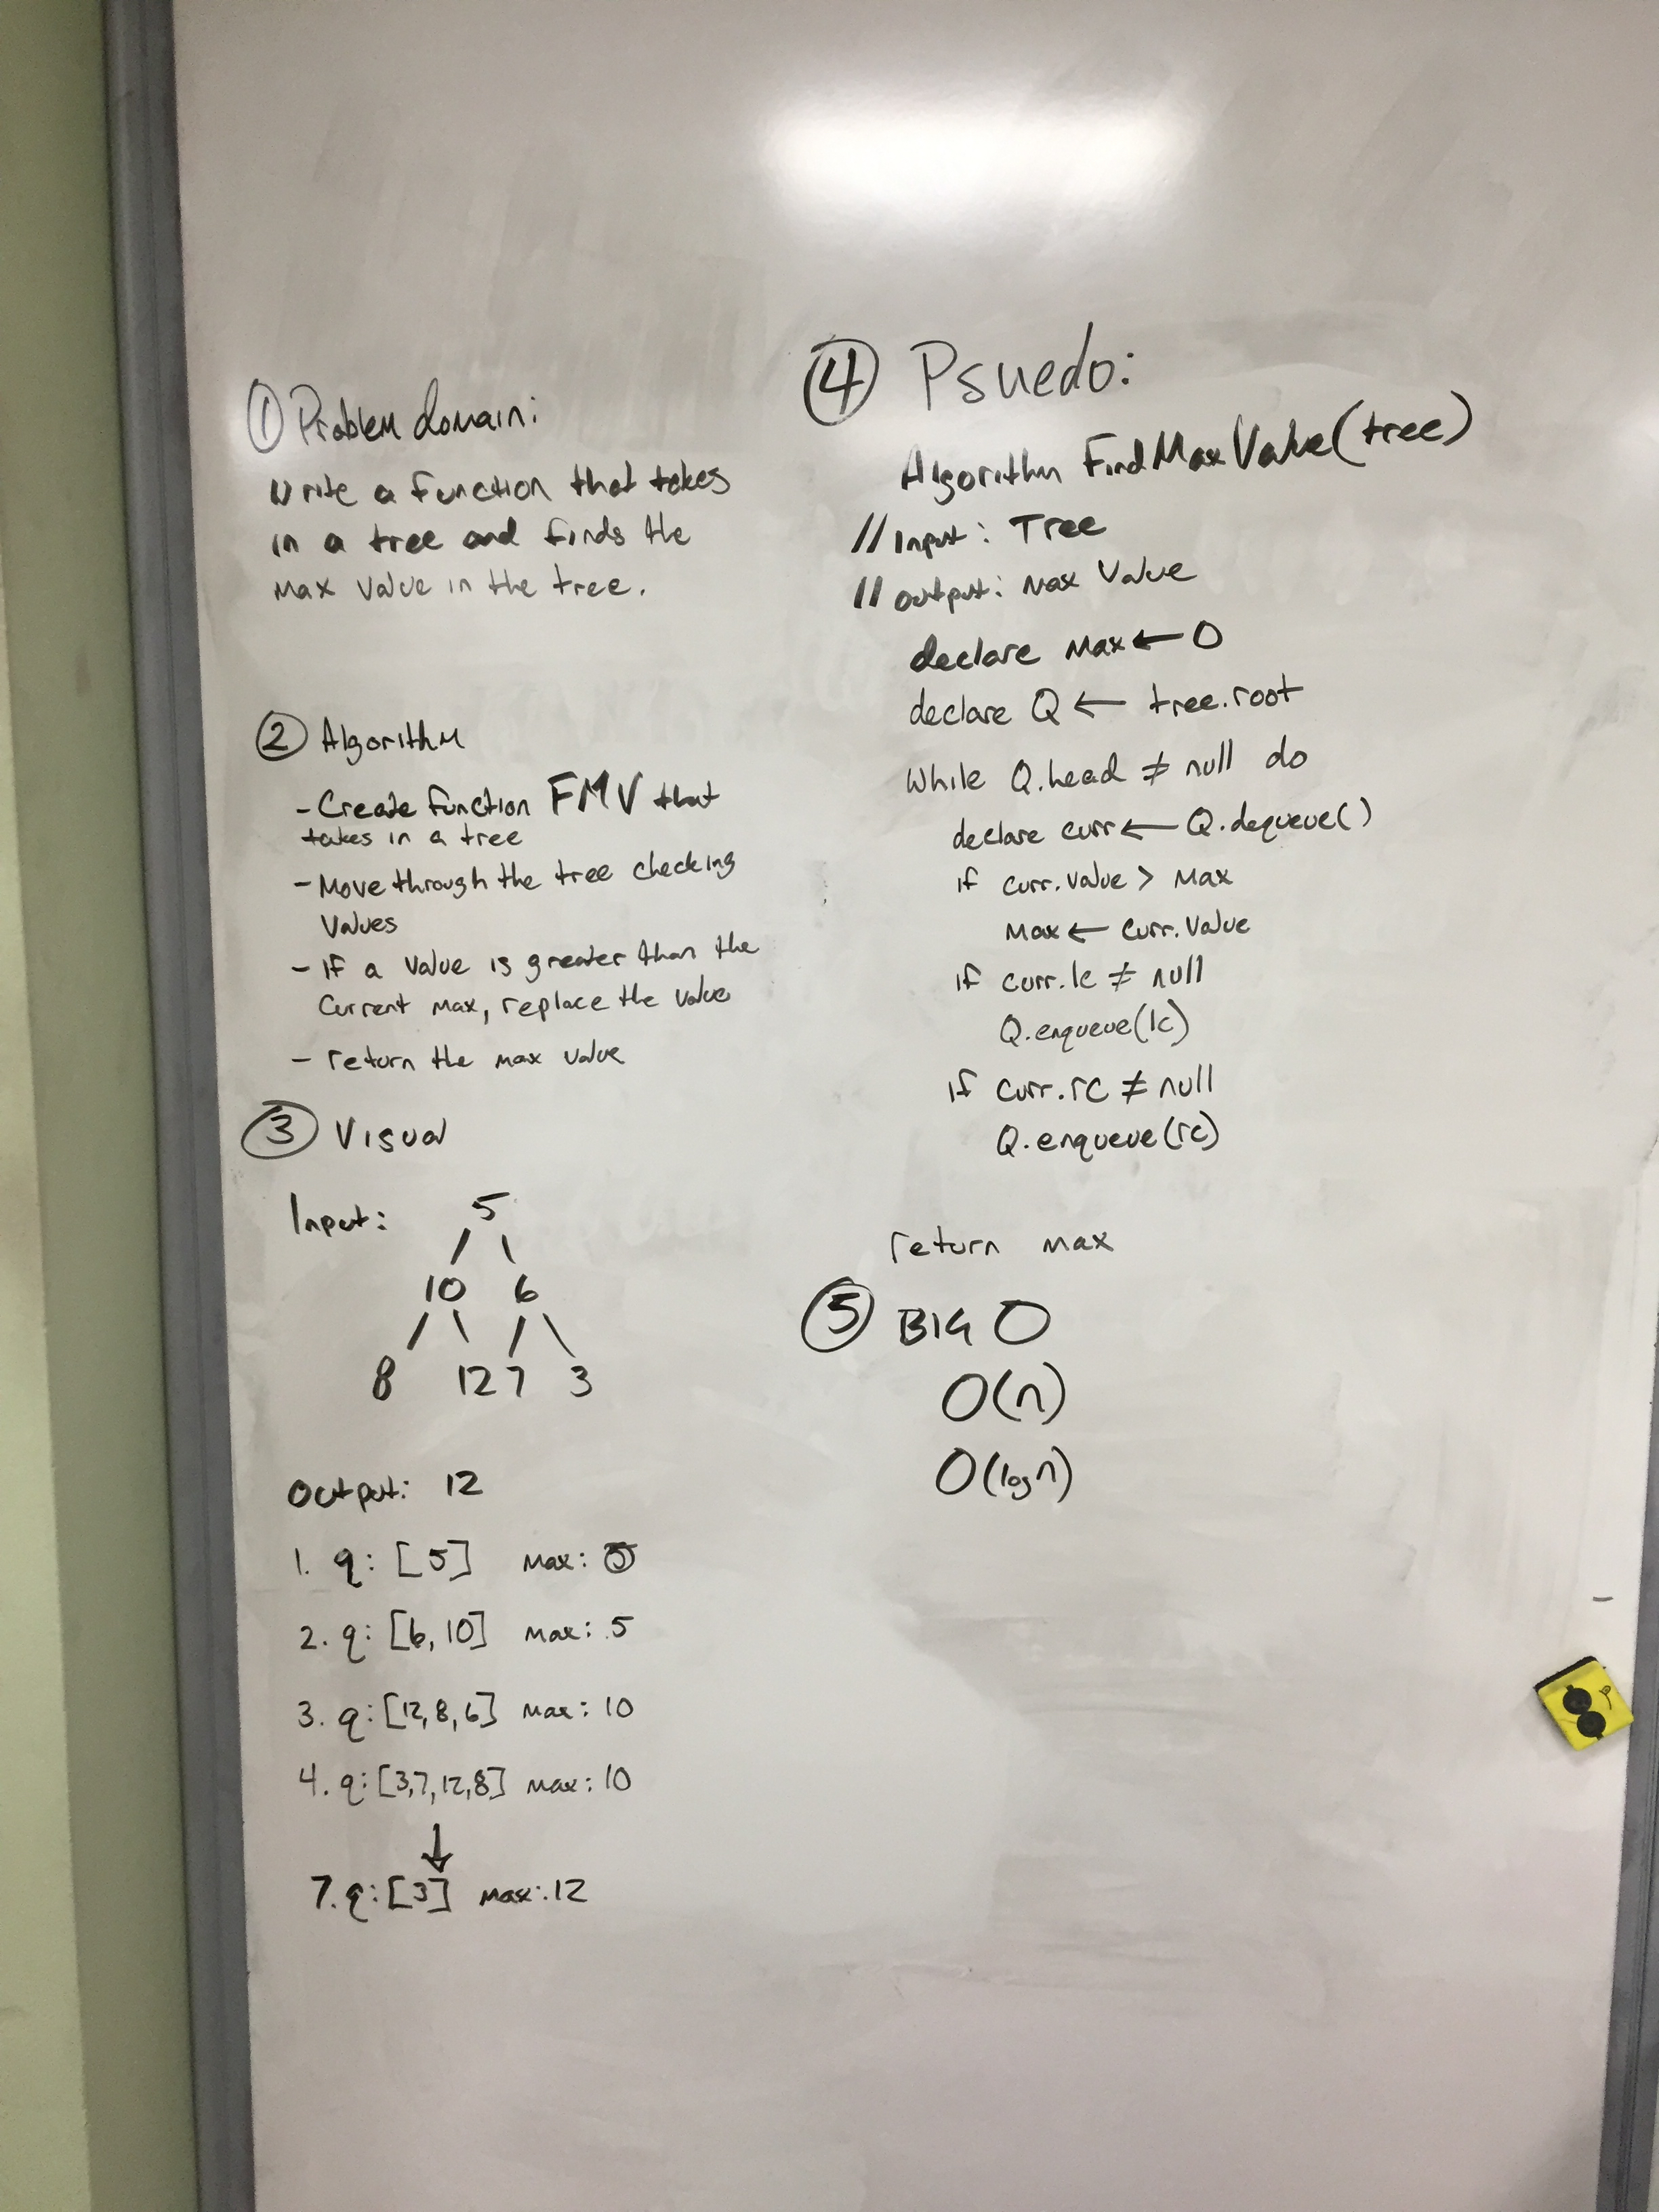 ① Problem domain:
Write a function that takes
in a tree and finds the
max value in the tree.
② Algorithm
- Create function FMV that
takes in a tree
- Move through the tree checking
values
- If a value is greater than the
current max, replace the value
- return the max value
③ Visual
Input:
5
/ \
10 6
/ \ / \
8 12 7 3
Output: 12
1. q: [5] max:
2. q: [6, 10] max: 5
3. q: [12, 8, 6] max: 10
4. q: [3,7,12,8] max: 10
↓
7. q: [3] max: 12
④ Psuedo:
Algorithm FindMaxValue(tree)
// Input: Tree
// output: max value
declare max ← 0
declare Q ← tree.root
while Q.head ≠ null do
declare curr ← Q.dequeue()
if curr.value > max
max ← curr.value
if curr.lc ≠ null
Q.enqueue(lc)
if curr.rc ≠ null
Q.enqueue(rc)
return max
⑤ BIG O
O(n)
O(log n)